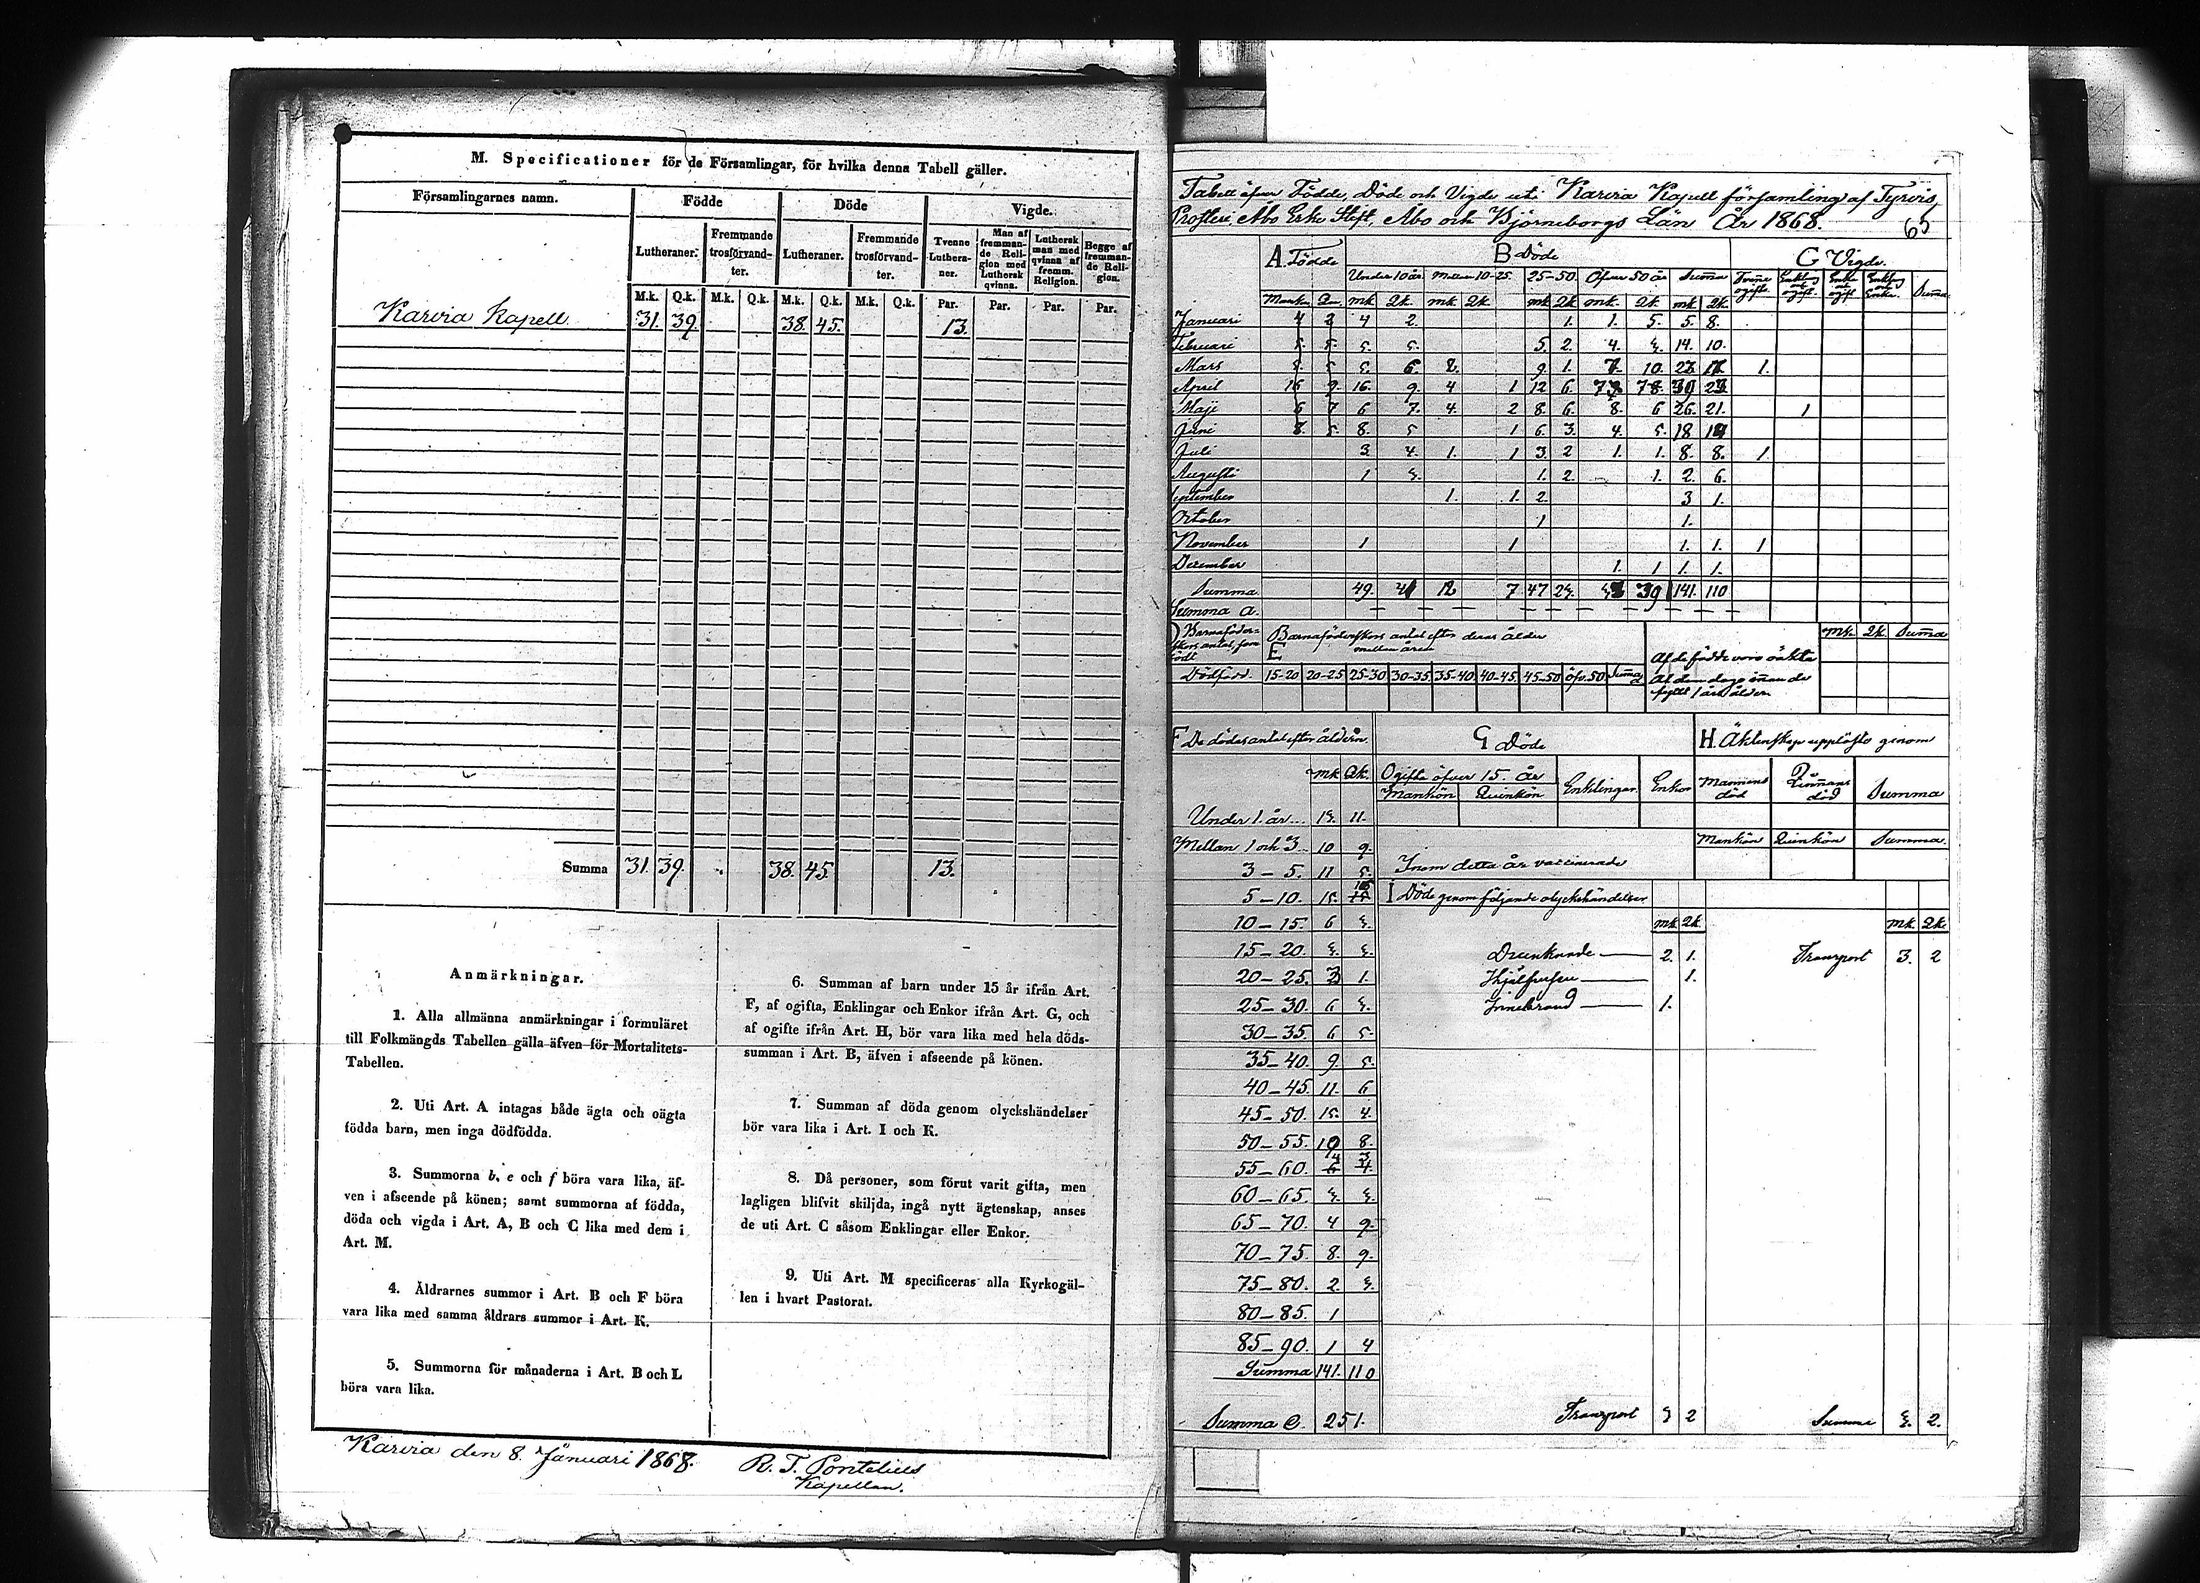 M. Specificationer för de Församlingar, för hvilka denna Tabell gäller.
Församlingarnes namn. Födde Döde Vigde.
Lutheraner. Fremmande trosförvandter. Lutheraner. Fremmande trosförvandter. Tvenne Lutheraner. Man af fremmande Religion med Luthersk qvinna. Luthersk man med qvinna af fremm. Religion. Begge af fremmande Religion.
M.k. Q.k. M.k. Q.k. M.k. Q.k. M.k. Q.k. Par. Par. Par. Par.
Karvia Kapell 31. 39. 38. 45. 13.
Summa 31. 39. 38. 45. 13.
Anmärkningar.
1. Alla allmänna anmärkningar i formuläret
till Folkmängds Tabellen gälla äfven för Mortalitets-
Tabellen.
2. Uti Art. A intagas både ägta och oägta
födda barn, men inga dödfödda.
3. Summorna b, e och f böra vara lika, äf-
ven i afseende på könen; samt summorna af födda,
döda och vigda i Art. A, B och C lika med dem i
Art. M.
4. Åldrarnes summor i Art. B och F böra
vara lika med samma åldrars summor i Art. K.
5. Summorna för månaderna i Art. B och L
böra vara lika.
6. Summan af barn under 15 år ifrån Art.
F, af ogifta, Enklingar och Enkor ifrån Art. G, och
af ogifte ifrån Art. H, bör vara lika med hela döds-
summan i Art. B, äfven i afseende på könen.
7. Summan af döda genom olyckshändelser
bör vara lika i Art. I och K.
8. Då personer, som förut varit gifta, men
lagligen blifvit skiljda, ingå nytt ägtenskap, anses
de uti Art. C såsom Enklingar eller Enkor.
9. Uti Art. M specificeras alla Kyrkogäl-
len i hvart Pastorat.
Karvia den 8. Januari 1868. R. T. Pontelius
Kapellan.
Tabell öfver Födde, Döde och Vigde uti Karvia Kapell församling af Tyrvis
Prosteri, Åbo Erke Stift, Åbo och Björneborgs Län År 1868. 65
A. Födde B Döde C Vigde.
Under 10 år. Mellan 10-25. 25-50. Öfver 50 år. Summa
Januari 4 2 4 2. 1. 1. 5. 5. 8.
Februari 5. 2. 4. 14. 10.
Mars 9. 1. 10. 1.
April 16 9. 16. 9. 4 1 12 6.
Maji 6 7 6 7. 4. 2 8. 6. 8. 6 26. 21. 1
Juni 8. 5. 8. 5 1 6. 3. 4. 5. 18
Juli 3 4. 1. 1 3. 2 1. 1. 8. 8. 1.
Augusti 1 1. 2. 1. 2. 6.
September 1. 1. 2. 3 1.
October 1 1.
November 1 1 1. 1. 1
December 1. 1 1. 1.
Summa 49. 41 12 7 47 39 141. 110
Summa a.
E Barnaföderskors antal efter deras ålder
mellan åren
Dödfödd. 15-20 20-25 25-30 30-35. 35-40. 40-45. 45-50 öfv. 50 Summa
Af de födde voro oäkta
mk. Qk. Summa
F De dödes antal efter åldern. G Döde H. Äktenskap upplösts genom
mk Qk. Ogifte öfver 15. år Enklingar Enkor Mannens död Qvinnans död Summa
Mankön Qvinkön
Under 1. år 11.
Mellan 1 och 3 10 9.
Mankön Qvinkön Summa.
Inom detta år vaccinerade
3-5. 11 5.
5-10. 15.
I Döde genom följande olyckshändelser
10-15. 6
mk Qk. mk. Qk.
15-20.
Drunknade 2. 1. Transport 3. 2
20-25. 1.
1.
25-30. 6
1.
30-35. 6 5.
35-40. 9. 5.
40-45. 11. 6
45-50. 15. 4.
50-55. 10 8.
55-60.
60-65.
65-70. 4 9.
70-75. 8. 9.
75-80. 2.
80-85. 1
85-90. 1 4
Summa 141. 110
Summa e. 251. Transport 3 2 Summa 3. 2.